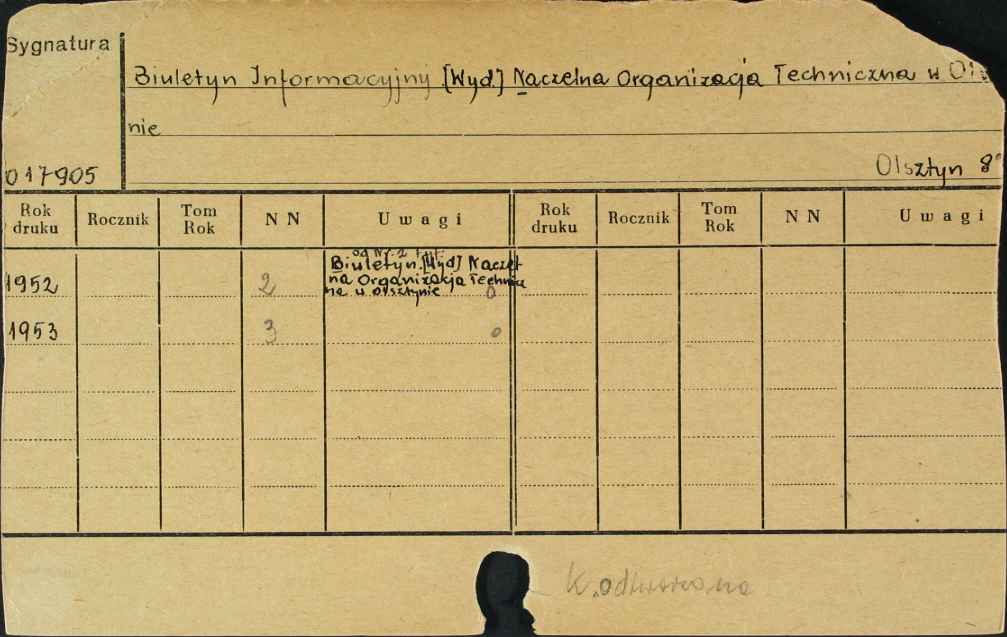 Sygnatura
Biuletyn Informacyjny [Wyd.] Naczelna Organizacja Techniczna w Ol
nie
017905
Olsztyn 8°
Rok druku Rocznik Tom Rok NN Uwagi Rok druku Rocznik Tom Rok NN Uwagi
od Nr. 2 tyt.
Biuletyn [Wyd] Naczel-
1952 2 na Organizacja Technicz
na w Olsztynie 0
1953 3 0
K. odtworzona